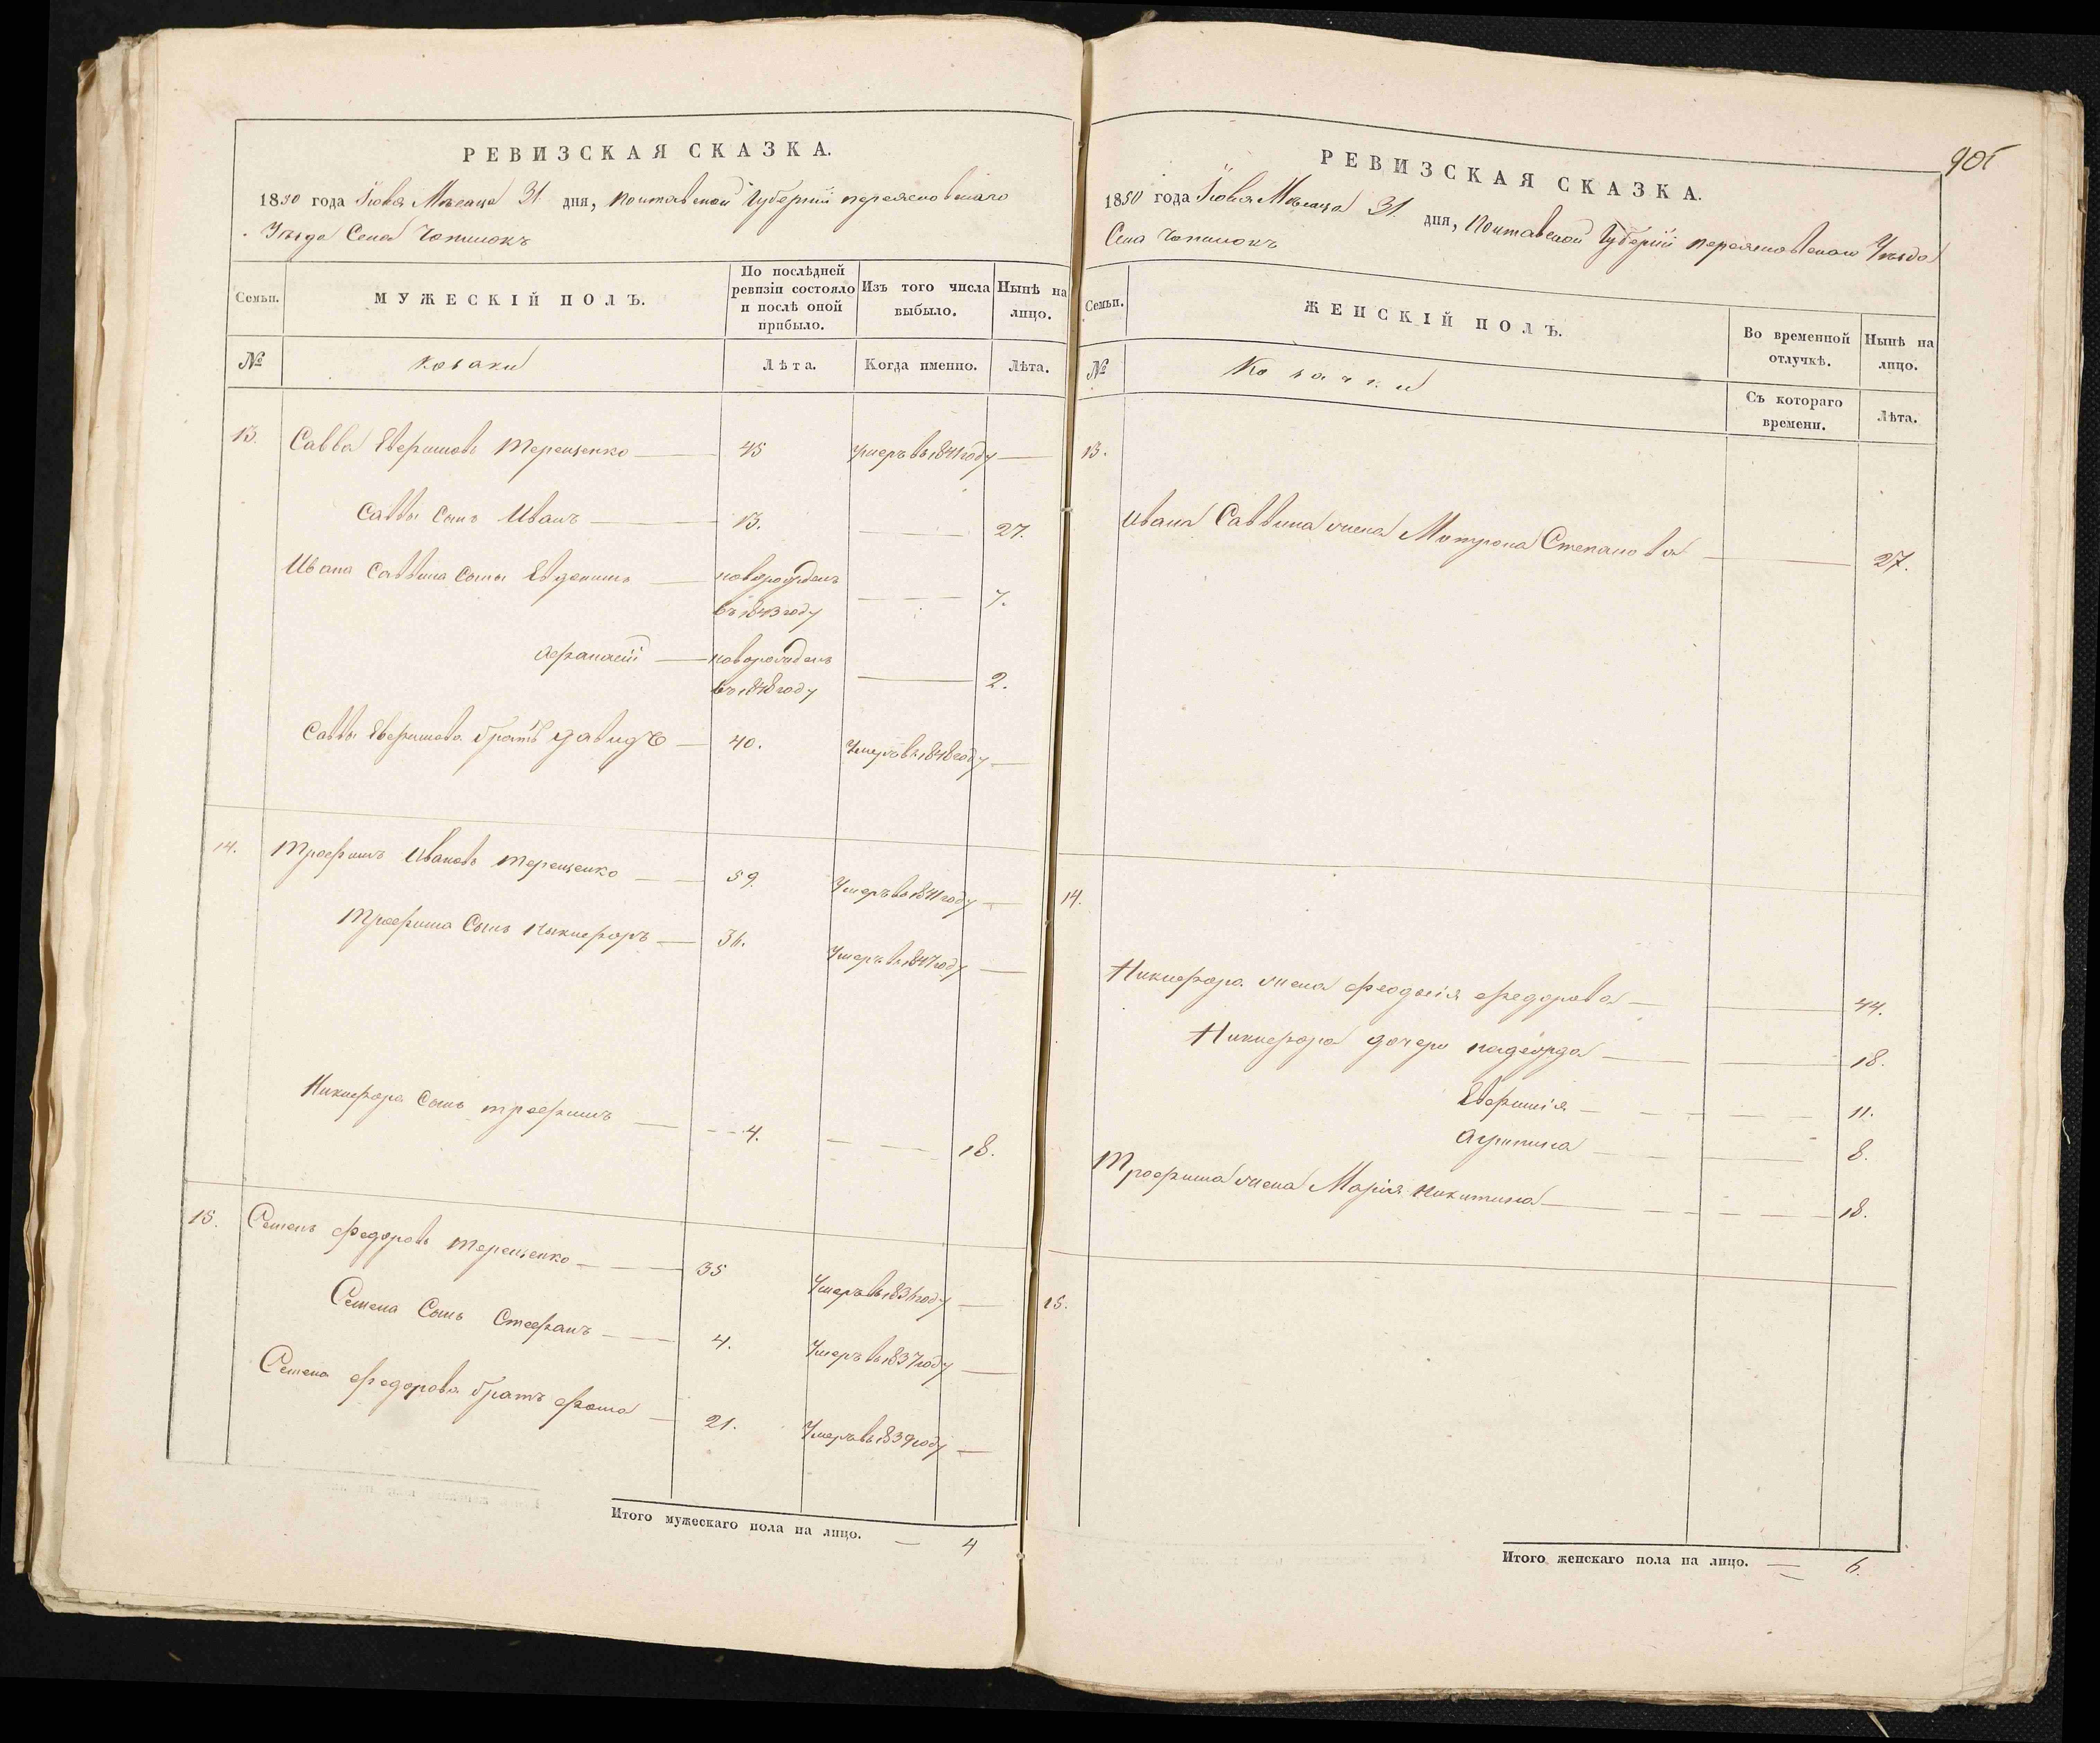 РЕВИЗСКАЯ СКАЗКА.
1850 года Іюля Мѣсяца 31 дня, Полтавской Губерніи Переясловскаго
Уѣзда Села Чопилокъ
Семьи.
МУЖЕСКІЙ ПОЛЪ.
По послѣдней ревизіи состояло и послѣ оной прибыло.
Изъ того числа выбыло.
Нынѣ на лицо.
№
Козаки
Лѣта.
Когда именно.
Лѣта.
13. Савва Евфимовъ Терещенко 45 умеръ въ 1841 году
Саввы Сынъ Иванъ 13. 27.
Ивана Саввина Сыны Евдокимъ новорожденъ
въ 1843 году 7.
Афанасій новорожденъ
въ 1848 году 2.
Саввы Евфимова братъ Давидъ 40. Умеръ въ 1848 году
14. Трофимъ Ивановъ Терещенко 59. Умеръ въ 1841 году
Трофима Сынъ Никифоръ 36. Умеръ въ 1847 году
Никифора Сынъ Трофимъ 4. 18.
15. Семенъ Федоровъ Терещенко 35 Умеръ въ 1836 году
Семена Сынъ Стефанъ 4. Умеръ въ 1837 году
Семена Федорова братъ Фома 21. Умеръ въ 1839 году
Итого мужескаго пола на лицо. 4
905
РЕВИЗСКАЯ СКАЗКА.
1850 года Іюля Мѣсяца 31. дня, Полтавской Губерніи Переясловскаго Уѣзда
Села Чопилокъ
Семьи.
ЖЕНСКІЙ ПОЛЪ.
Во временной отлучкѣ.
Нынѣ на лицо.
№
Козачки
Съ котораго времени.
Лѣта.
13.
Ивана Саввина жена Мотрона Степанова 27.
14.
Никифора жена Феодосія Федорова 44.
Никифора дочери Надежда 18.
Евфимія 11.
Агрипина 8.
Трофима жена Марія Никитина 18.
15.
Итого женскаго пола на лицо. 6.